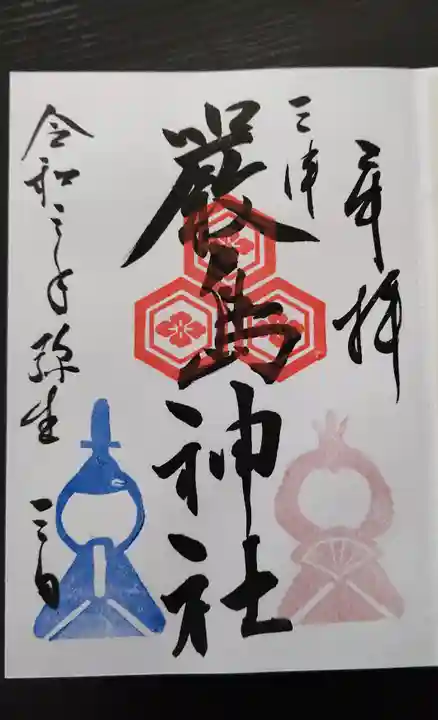 奉拝
三津
厳島神社
令和三年弥生
三日